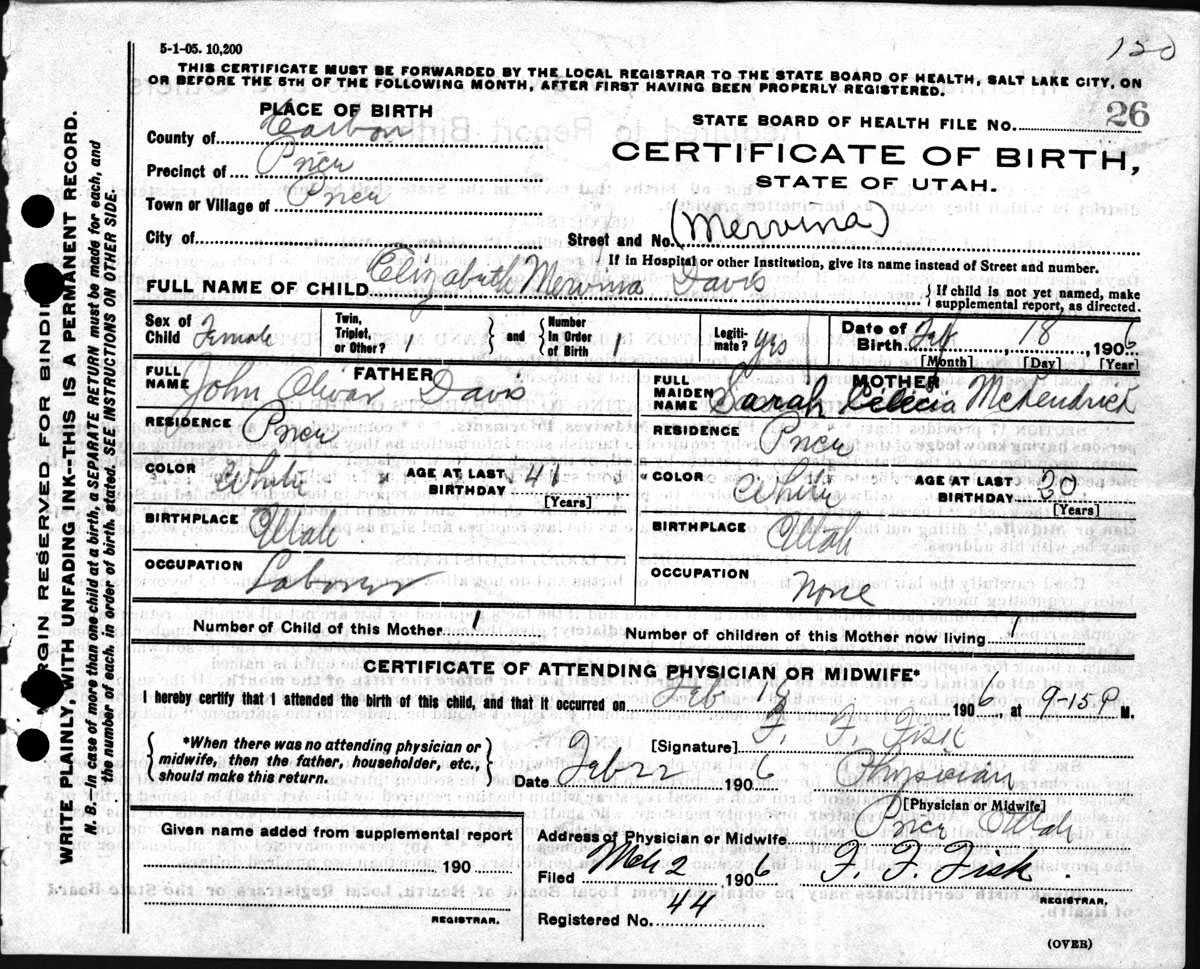 120
5-1-05. 10,200
THIS CERTIFICATE MUST BE FORWARDED BY THE LOCAL REGISTRAR TO THE STATE BOARD OF HEALTH, SALT LAKE CITY, ON
OR BEFORE THE 5TH OF THE FOLLOWING MONTH, AFTER FIRST HAVING BEEN PROPERLY REGISTERED.
PLACE OF BIRTH
STATE BOARD OF HEALTH FILE NO. 26
County of Carbon
CERTIFICATE OF BIRTH,
Precinct of Price
STATE OF UTAH.
Town or Village of Price
(Mervina)
City of
Street and No.
If in Hospital or other Institution, give its name instead of Street and number.
FULL NAME OF CHILD Elizabeth Mervina Davis
{If child is not yet named, make
supplemental report, as directed.
Sex of Child Female
Twin, Triplet, or Other? 1
and
Number In Order of Birth 1
Legiti- mate? yes
Date of Birth Feb 18, 1906
[Month] [Day] [Year]
FATHER
FULL NAME John Olivar Davis
RESIDENCE Price
COLOR White
AGE AT LAST BIRTHDAY 41
[Years]
BIRTHPLACE Utah
OCCUPATION Laborer
MOTHER
FULL MAIDEN NAME Sarah McKendrick
RESIDENCE Price
COLOR White
AGE AT LAST BIRTHDAY 20
[Years]
BIRTHPLACE Utah
OCCUPATION None
Number of Child of this Mother 1
Number of children of this Mother now living 1
CERTIFICATE OF ATTENDING PHYSICIAN OR MIDWIFE*
I hereby certify that I attended the birth of this child, and that it occurred on Feb 18 1906 at 9-15 P M.
*When there was no attending physician or
midwife, then the father, householder, etc.,
should make this return.
[Signature] F. F. Fisk
Date Feb 22 1906
Physician
[Physician or Midwife]
Given name added from supplemental report
190
REGISTRAR.
Address of Physician or Midwife Price Utah
Filed Mch 2 1906 F. F. Fisk
REGISTRAR.
Registered No. 44
(OVER)
MARGIN RESERVED FOR BINDING
WRITE PLAINLY, WITH UNFADING INK--THIS IS A PERMANENT RECORD.
N. B.--In case of more than one child at a birth, a SEPARATE RETURN must be made for each, and
the number of each, in order of birth, stated. SEE INSTRUCTIONS ON OTHER SIDE.